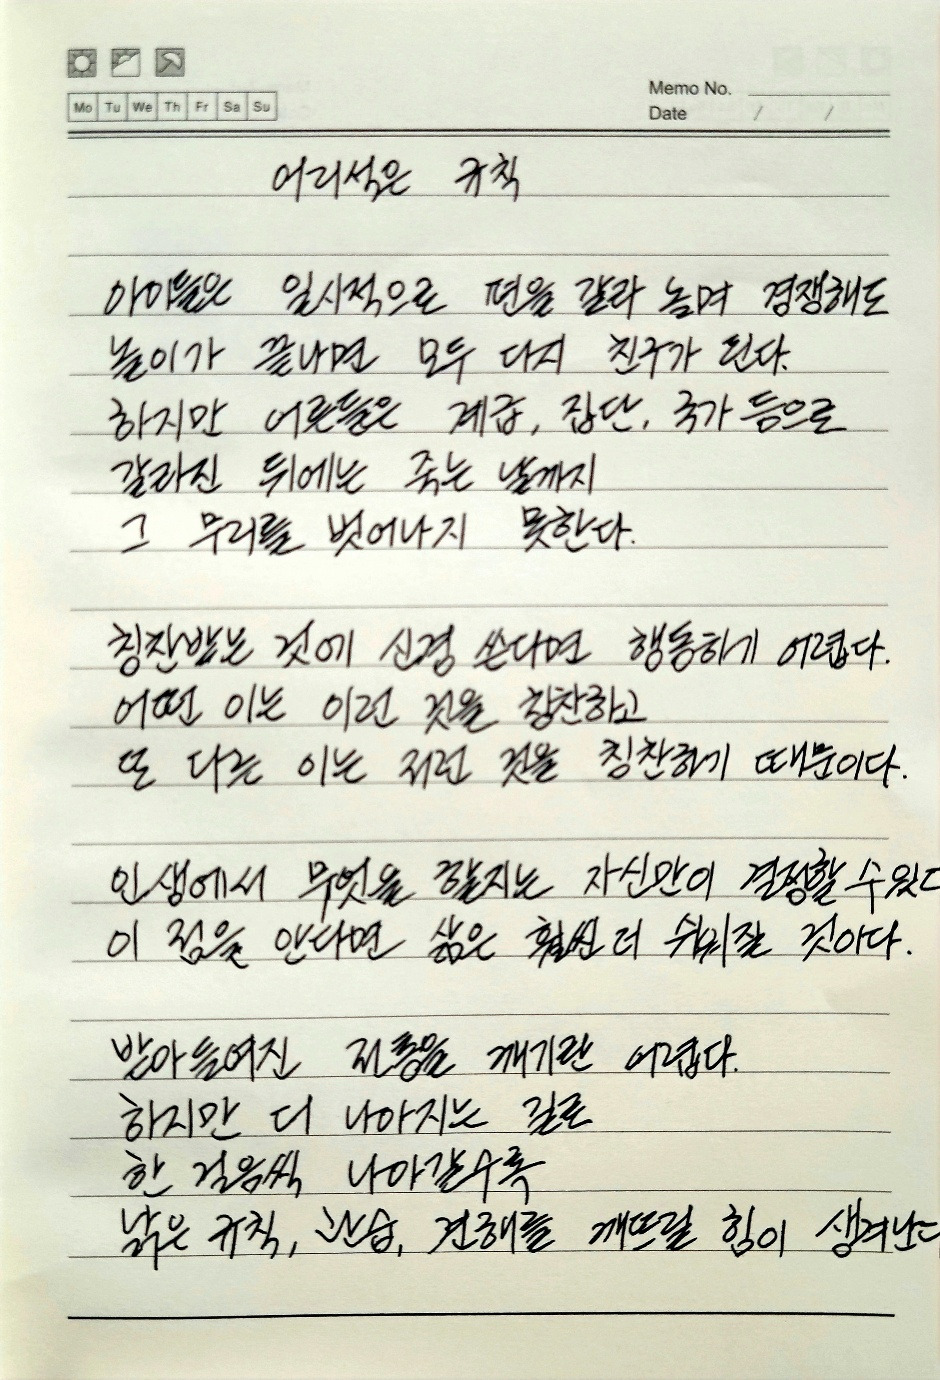 Memo No.
Mo Tu We Th Fr Sa Su
Date / /
어리석은 규칙
아이들은 일시적으로 편을 갈라 놀며 경쟁해도
놀이가 끝나면 모두 다시 친구가 된다.
하지만 어른들은 계급, 집단, 국가 등으로
갈라진 뒤에는 죽는 날까지
그 무리를 벗어나지 못한다.
칭찬받는 것에 신경 쓴다면 행동하기 어렵다.
어떤 이는 이런 것을 칭찬하고
또 다른 이는 저런 것을 칭찬하기 때문이다.
인생에서 무엇을 할지는 자신만이 결정할 수 있다
이 점을 안다면 삶은 훨씬 더 쉬워질 것이다.
받아들여진 전통을 깨기란 어렵다.
하지만 더 나아지는 길로
한 걸음씩 나아갈수록
낡은 규칙, 관습, 견해를 깨뜨릴 힘이 생겨난다